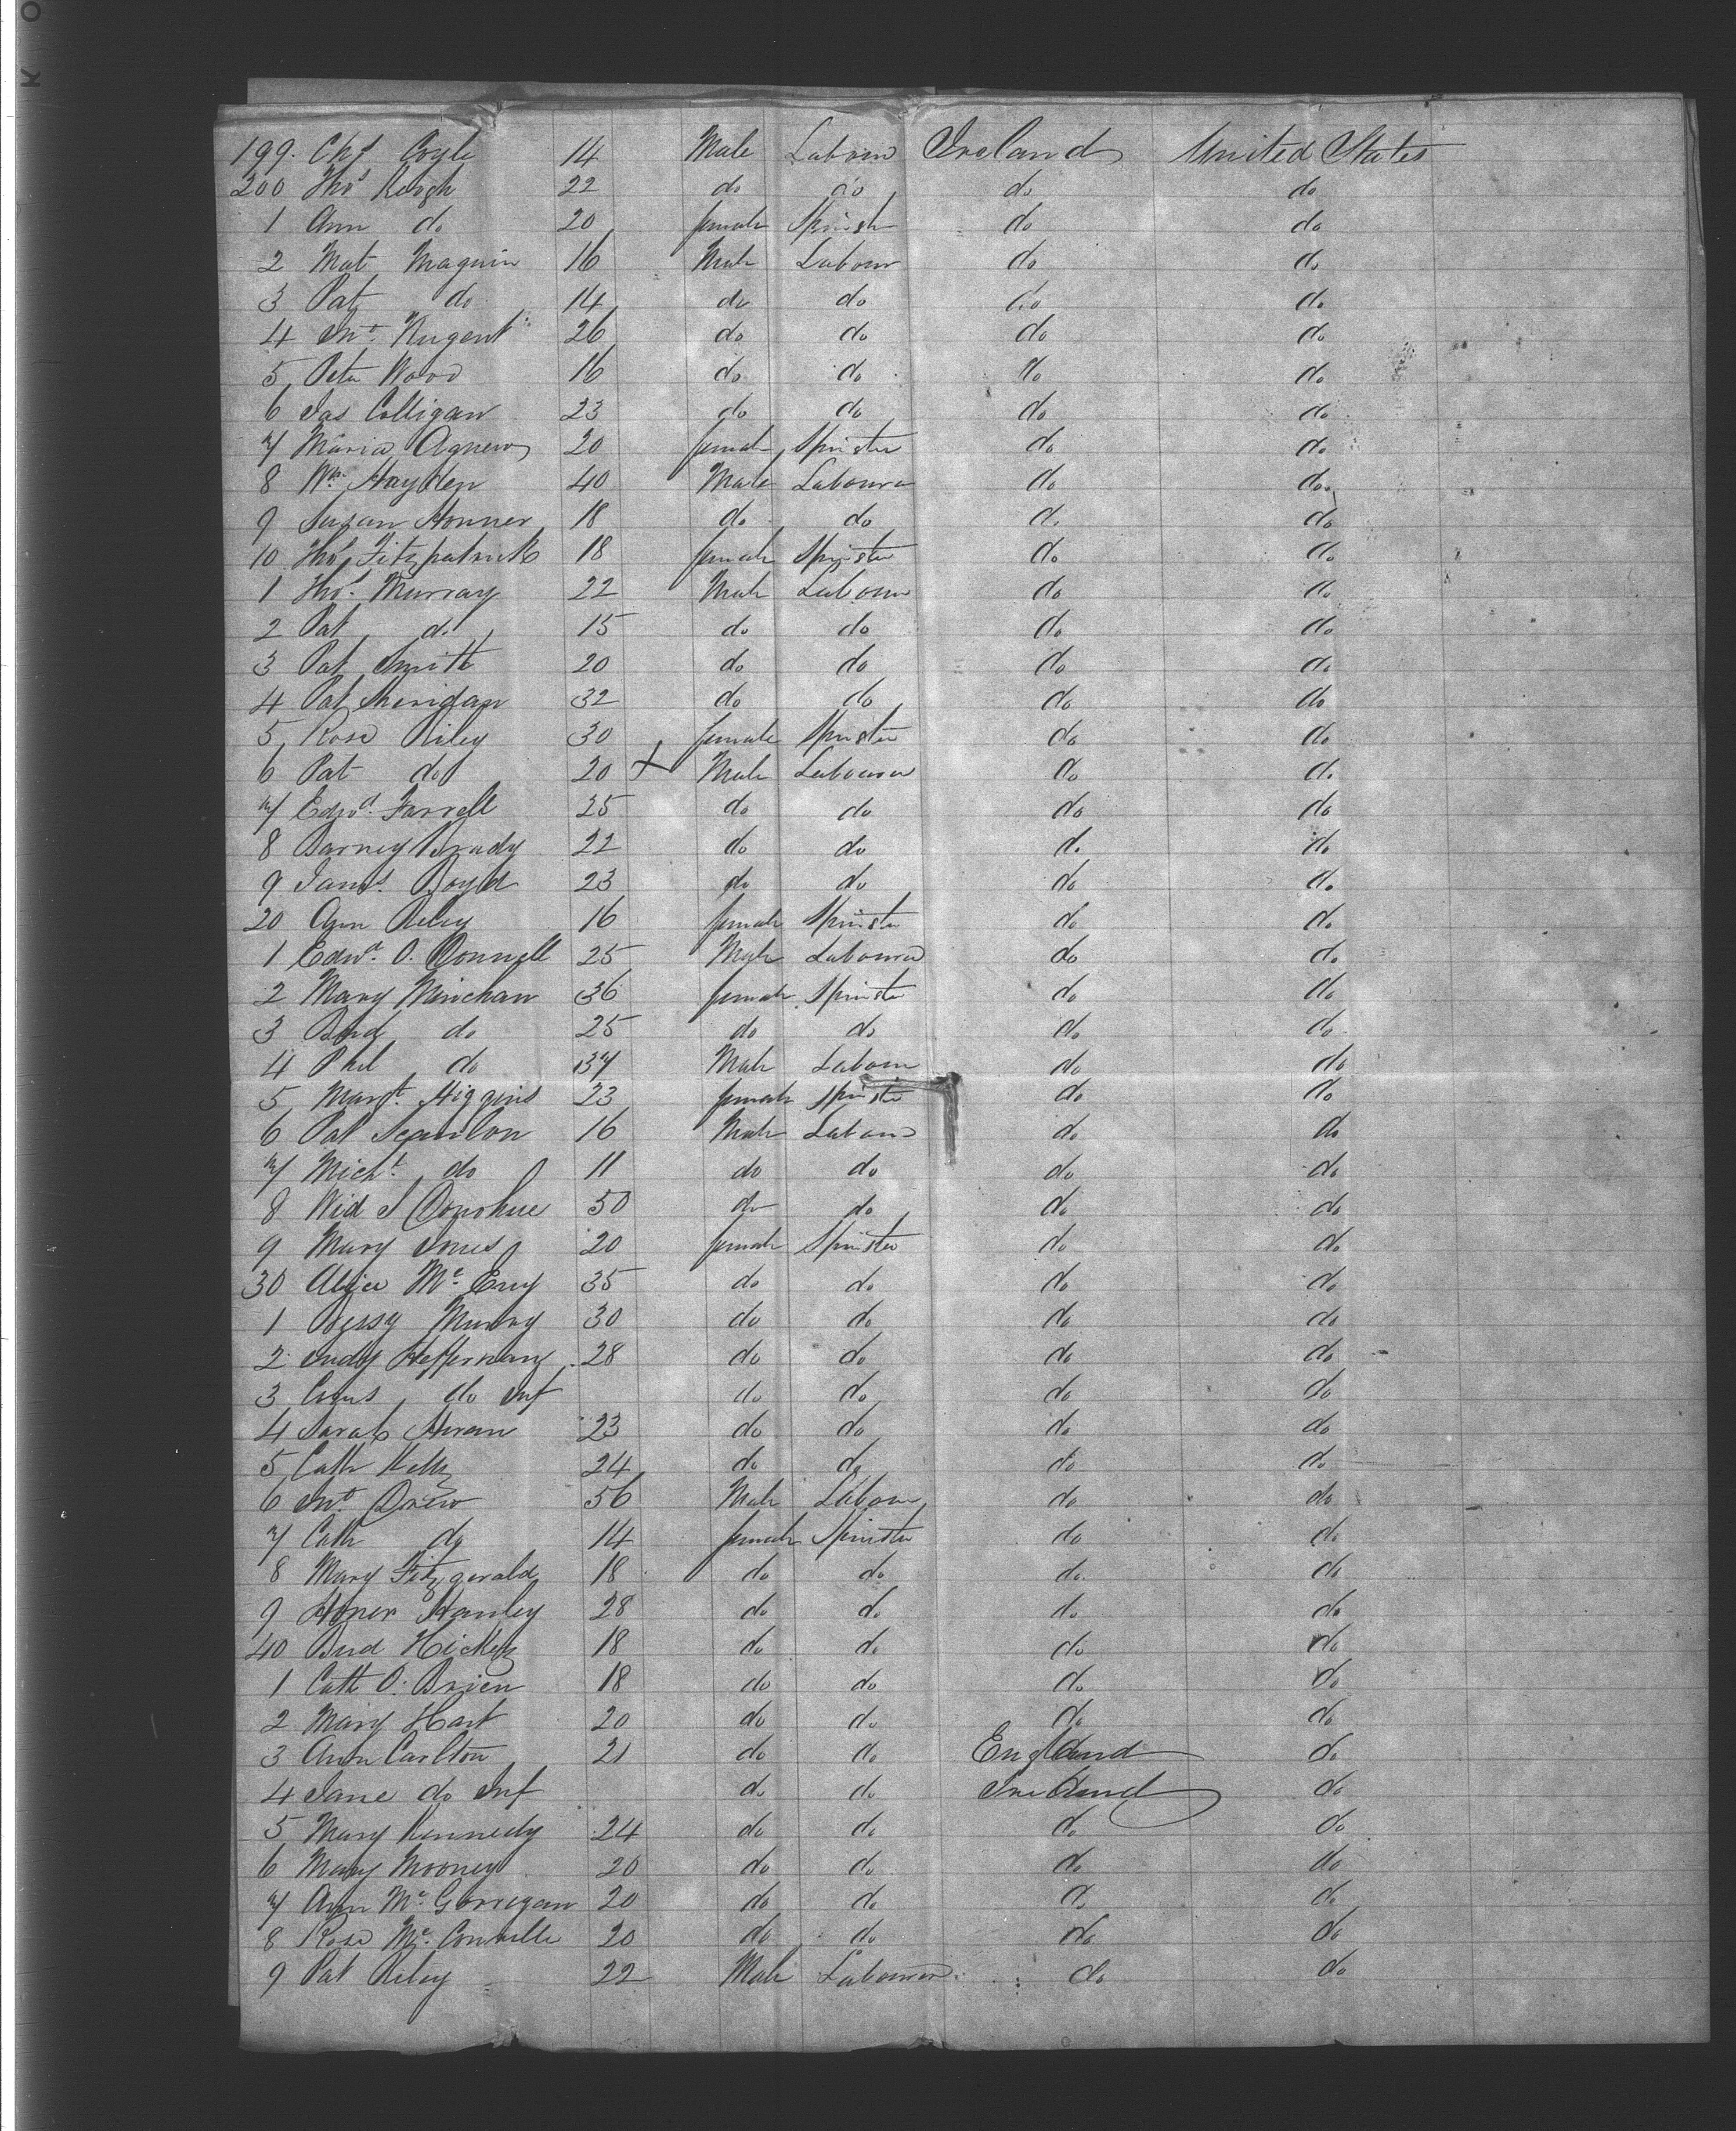 199. Chs Coyle 14 Male Labourer Ireland United States
200 Thos Keogh 22 do do do do
1 Ann do 20 female Spinster do do
2 Mat Maguin 16 Male Labour do do
3 Pat do 14 do do do do
4 Jno. Nugent 26 do do do do
5 Peter Wood 16 do do do do
6 Jas Colligan 23 do do do do
7 Maria Agnew 20 female Spinster do do
8 Wm. Hayden 40 Male Labourer do do
9 Susan Honner 18 do do do do
10 Thos Fitzpatrick 18 female Spinster do do
1 Thos. Murray 22 Male Labour do do
2 Pat do 15 do do do do
3 Pat Smith 20 do do do do
4 Pat Sheridan 32 do do do do
5 Rose Riley 30 female Spinster do do
6 Pat do 20 X Male Labourer do do
7 Edwd. Farrell 25 do do do do
8 Barney Brady 22 do do do do
9 Jams. Boyd 23 do do do do
20 Ann Riley 16 female Spinster do do
1 Edwd. O. Donnell 25 Male Labourer do do
2 Mary Minchan 36 female Spinster do do
3 Brid do 25 do do do do
4 Phil do 37 Male Labour do do
5 Margt. Higgins 23 female Spinster do do
6 Pat Scanlon 16 Male Labour do do
7 Michl. do 11 do do do do
8 Wid J Donohue 50 do do do do
9 Mary Jones 20 female Spinster do do
30 Alice Mc. Eny 35 do do do do
1 Bessy Murray 30 do do do do
2 Judy Heffernan 28 do do do do
3 do Inf do do do do
4 Sarah Horan 23 do do do do
5 Cath Kelly 24 do do do do
6 Jno. Drew 56 Male Labour do do
7 Cath do 14 female Spinster do do
8 Mary Fitzgerald 18 do do do do
9 Honer Hanley 28 do do do do
40 Brid Hickey 18 do do do do
1 Cath O. Brien 18 do do do do
2 Mary Hart 20 do do do do
3 Ann Carlton 21 do do England do
4 Jane do Inf do do Ireland do
5 Mary Kennedy 24 do do do do
6 Mary Mooney 20 do do do do
7 Ann Mc. Gorregan 20 do do do do
8 Rose Mc. Conville 20 do do do do
9 Pat Riley 22 Male Labourer do do